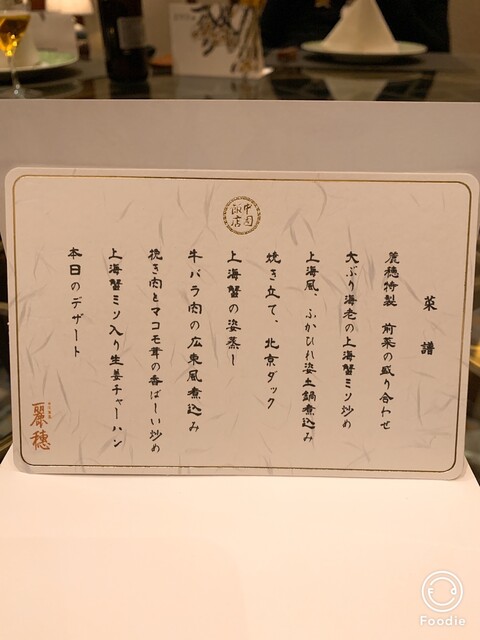 中国飯店
菜譜
麗穂特製 前菜の盛り合わせ
大ぶり海老の上海蟹ミソ炒め
上海風、ふかひれ姿土鍋煮込み
焼き立て、北京ダック
上海蟹の姿蒸し
牛バラ肉の広東風煮込み
挽き肉とマコモ茸の香ばしい炒め
上海蟹ミソ入り生姜チャーハン
本日のデザート
麗穂
Foodie